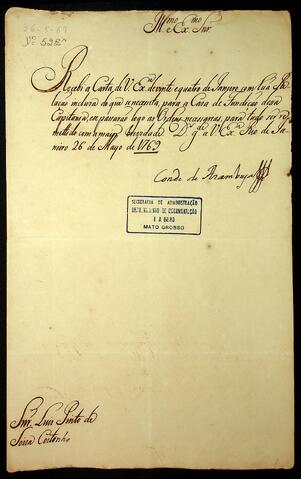 26-5-69
Nº 522
Illmo. e Exmo. Snr.
Recebi a Carta de V. Exª. de vinte e quatro de Janeiro com Sua Re
lação incluza do que necessita para a Caza de Fundição dessa
Capitania, e se passarão logo as Ordens necessarias, para tudo ser re
metido com a mayor brevidade. Ds. gde. a V. Exª. Rio de Ja
neiro 26 de Mayo de 1769
Conde de Azambuja
SECRETARIA DE ADMINISTRAÇÃO
DOCUMENTAÇÃO
MATO GROSSO
Snr. Luis Pinto de
Souza Coutinho